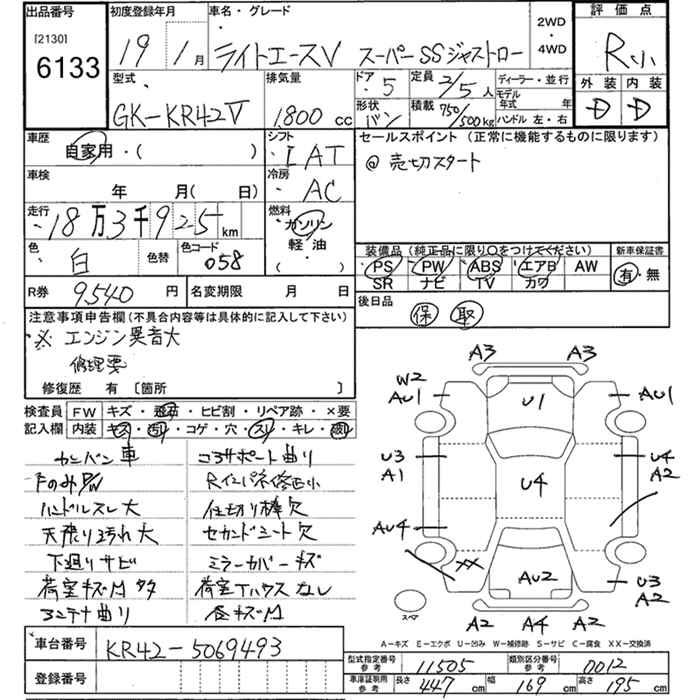 出品番号
[2130]
6133
初度登録年月
19年 1月
車名・グレード
ライトエースV スーパーSSジャストロー
2WD
・
4WD
評価点
R小
外装 内装
D D
型式
GK-KR42V
排気量
1800 cc
ドア
5
定員
2/5人
形状
バン
積載
750/500kg
ディーラー・並行
モデル年式 年
ハンドル 左・右
車歴
自家用・( )
シフト
IAT
車検
年 月(日)
冷房
AC
走行
18万3千925km
燃料
ガソリン
軽・油
( )
色
白
色替
色コード
058
R券 9540円
名変期限 月 日
セールスポイント (正常に機能するものに限ります)
@ 売切スタート
装備品(純正品に限り○をつけてください)
PS PW ABS エアB AW
SR ナビ TV カワ
新車保証書
有・無
後日品
保 取
注意事項申告欄(不具合内容等は具体的に記入して下さい)
※ エンジン異音大
修理要
修復歴 有 〔箇所 〕
検査員 FW キズ・飛石・ヒビ割・リペア跡・×要
記入欄 内装 キズ・汚れ・コゲ・穴・スレ・キレ・破レ
カンバン車
FのみP/W
ハンドルスレ大
天張り汚れ大
下廻りサビ
荷室キズM多
コンテナ曲り
コアサポート曲り
Rインパネ修正小
仕切り棒欠
セカンドシート欠
ミラーカバーキズ
荷室Tハウスなし
A3 A3
W2
AU1 U1 AU1
U3 U4
A1 U4 A2
AU4
XX
AU2 U3
A2
スペア
A2 A4 A2
A-キズ E-エクボ U-凹み W-補修跡 S-サビ C-腐食 XX-交換済
車台番号 KR42-5069493
登録番号
型式指定番号参考 11505 類別区分番号参考 0012
車庫証明用参考 長さ 447cm 幅 169cm 高さ 195cm